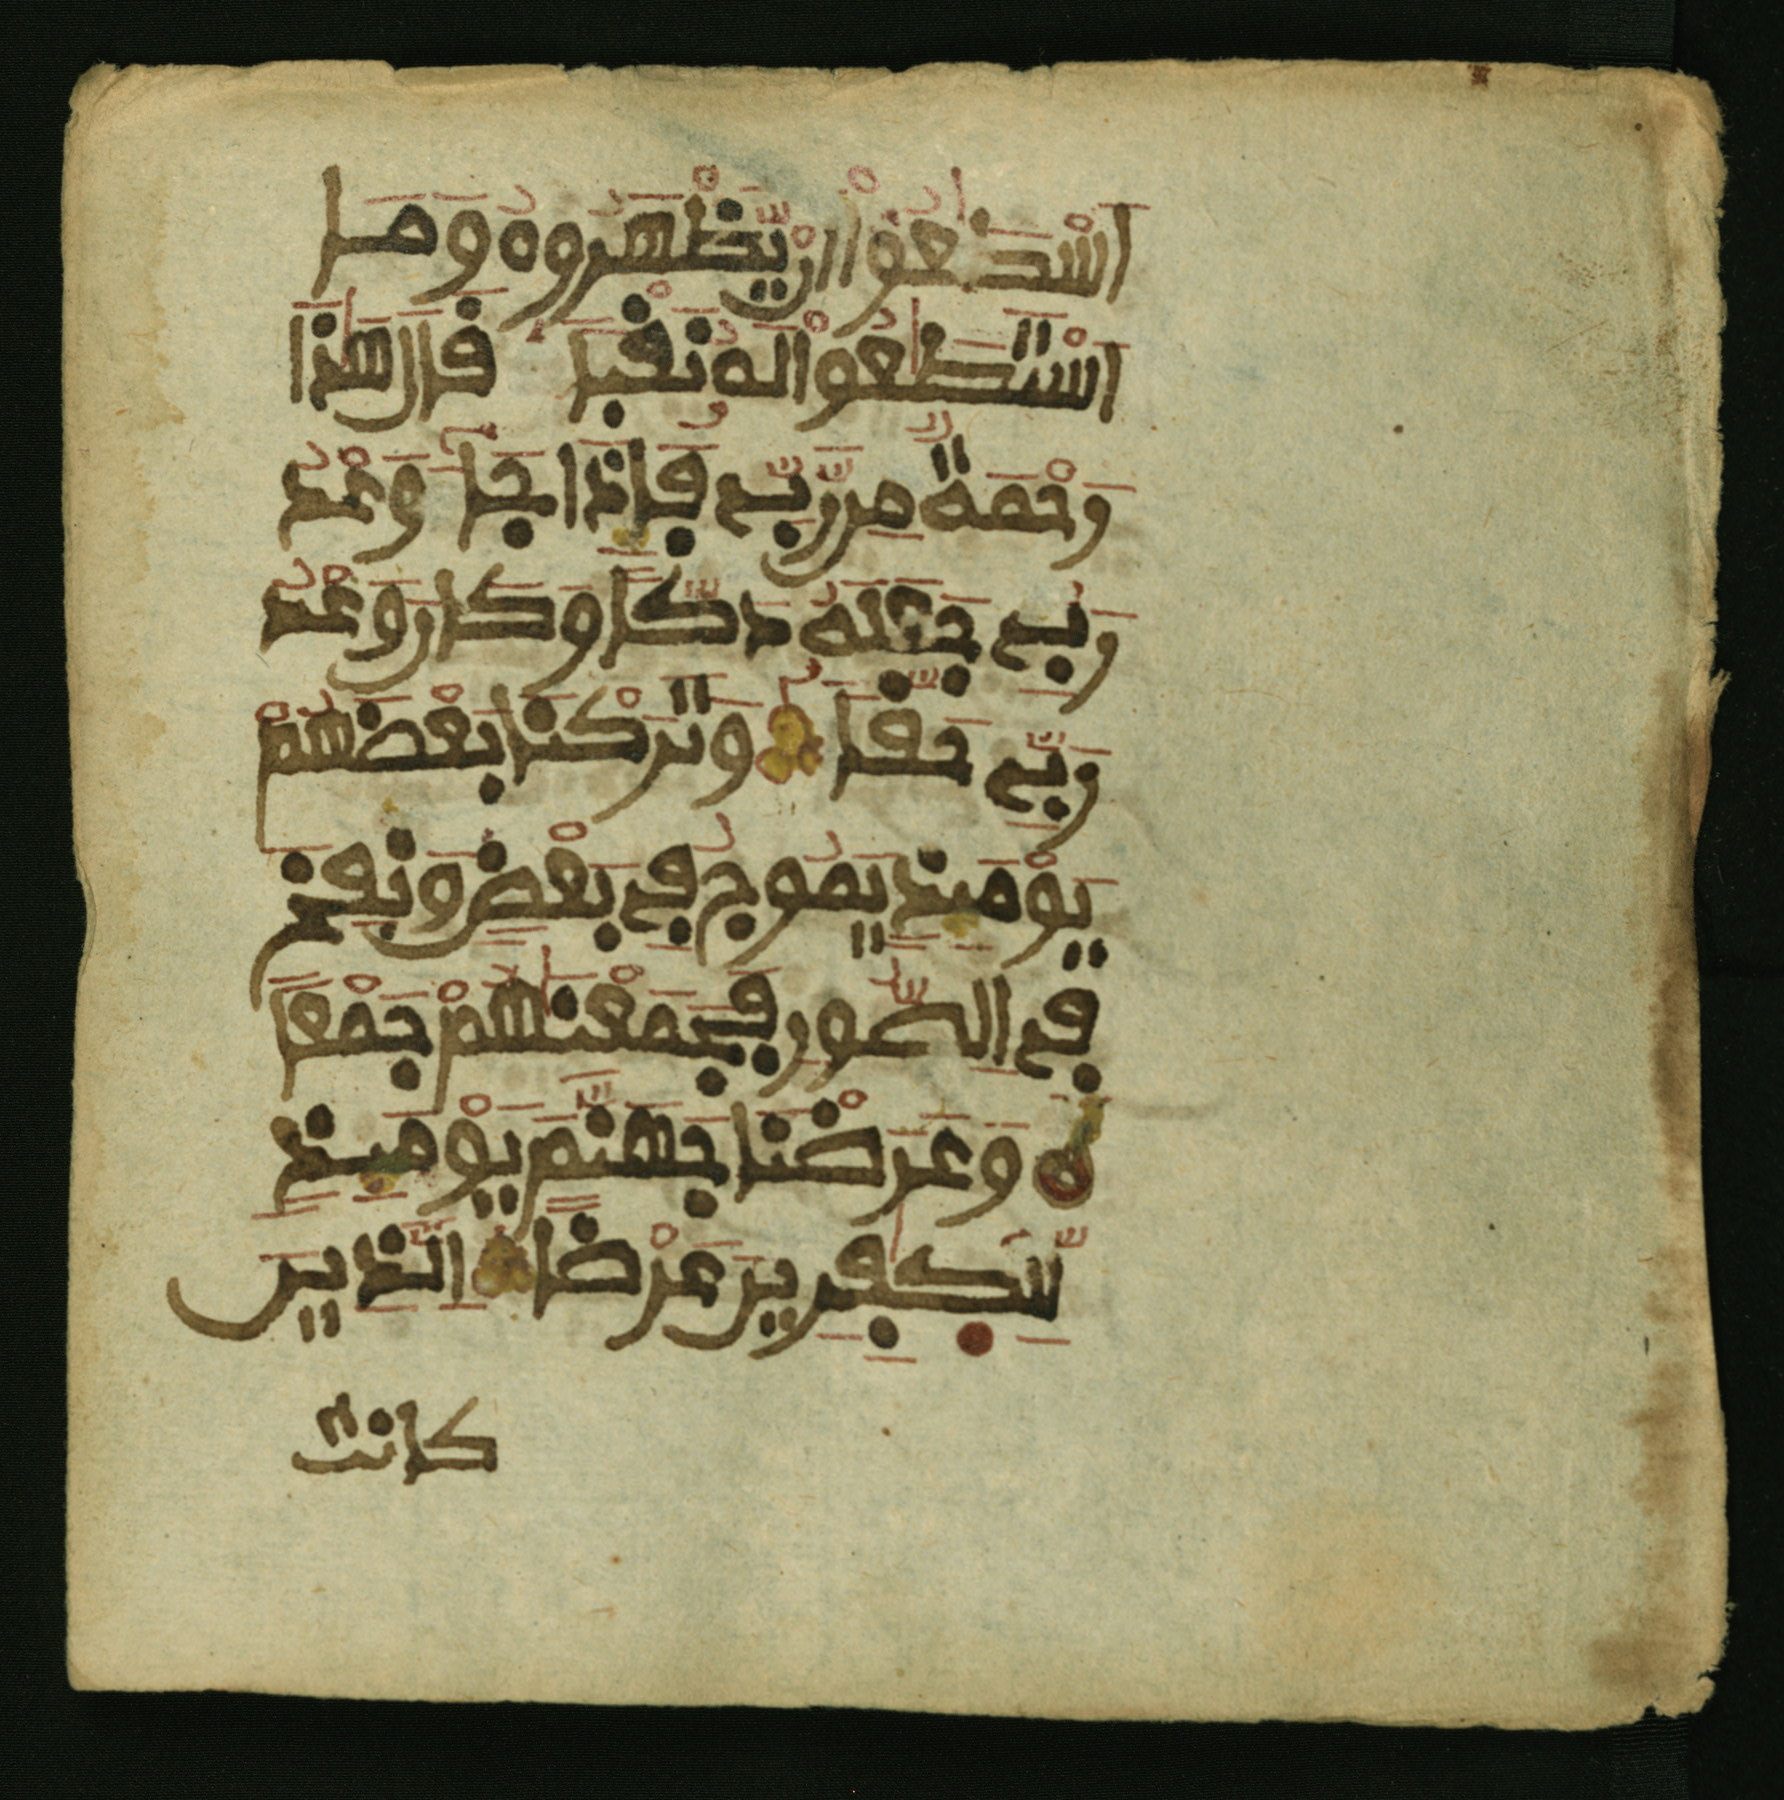 اسْطَٰعُوٓاْ أَنْ يَّظْهَرُوهُ وَمَا
اَسْتَطَٰعُواْ لَهُۥ نَقْبا قَالَ هَٰذَا
رَحْمَةٌ مِّن رَّبِّے فَإِذَا جَآءَ وَعْدُ
رَبِّے جَعَلَهُۥ دَكّاً وَكَانَ وَعْدُ
رَبِّے حَقّاً وَتَرَكْنَا بَعْضَهُمْ
يَوْمَئِذٍ يَمُوجُ فِے بَعْضٍ وَنُفِخَ
فِے الصُّورِ فَجَمَعْنَٰهُمْ جَمْعاً
وَعَرَضْنَا جَهَنَّمَ يَوْمَئِذٍ
لِّلْكَٰفِرِينَ عَرْضاً الَّذِينَ
كانت